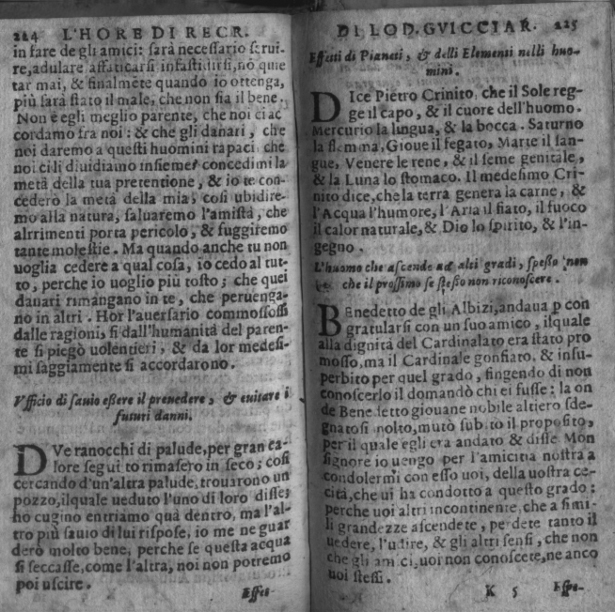 224 L'HORE DI RECR.
in fare de gli amici: sarà necessario serui-
re, adulare affaticarsi infastidirsi, nō quie
tar mai, & finalmēte quando io ottenga,
più sarà stato il male, che non sia il bene.
Non è egli meglio parente, che noi ci ac
cordamo fra noi: & che gli danari, che
noi daremo a questi huomini rapaci che
noi ci li diuidiamo insieme? concedimi la
metà della tua pretentione, & io te con-
cederò la metà della mia, così ubidire-
mo alla natura, saluaremo l'amistà, che
alrrimenti porta pericolo, & fuggiremo
tante molestie. Ma quando anche tu non
uoglia cedere a qual cosa, io cedo al tut-
to, perche io uoglio più tosto; che quei
danari rimangano in te, che peruenga-
no in altri. Hor l'auersario commossosi
dalle ragioni, sì dall'humanità del paren-
te si piegò uolentieri, & da lor medesi-
mi saggiamente si accordarono.
Vfficio di sauio essere il preuedere, & euitare i
futuri danni.
DVe ranocchi di palude, per gran ca-
lore seguito rimasero in seco; così
cercando d'un'altra palude, trouarono un
pozzo, ilquale ueduto l'uno di loro disse;
ho cugino entriamo quà dentro, ma l'al-
tro più sauio di lui rispose, io me ne guar
derò molto bene, perche se questa acqua
si seccasse, come l'altra, noi non potremo
poi uscire.
Effet-
DI LOD. GVICCIAR. 225
Effetti di Pianeti, & delli Elementi nelli huo-
mini.
DIce Pietro Crinito, che il Sole reg-
ge il capo, & il cuore dell'huomo.
Mercurio la lingua, & la bocca. Saturno
la flemma, Gioue il fegato, Marte il san-
gue, Venere le rene, & il seme genitale,
& la Luna lo stomaco. Il medesimo Cri-
nito dice, che la terra genera la carne, &
l'Acqua l'humore, l'Aria il fiato, il fuoco
il calor naturale, & Dio lo spirito, & l'in-
gegno.
L'huomo che ascende ad alti gradi, spesso non
che il prossimo se stesso non riconoscere.
BEnedetto de gli Albizi, andaua p con
gratularsi con un suo amico, ilquale
alla dignità del Cardinalato era stato pro
mosso, ma il Cardinale gonfiato, & insu-
perbito per quel grado, fingendo di non
conoscerlo il domandò chi ei fusse: la on
de Benedetto giouane nobile altiero sde-
gnatosi molto, mutò subito il proposito,
per il quale egli era andato & disse Mon
signore io uengo per l'amicitia nostra a
condolermi con esso uoi, della uostra ce-
cità, che ui ha condotto a questo grado:
perche uoi altri incontinente, che a simi-
li grandezze ascendete, perdete tanto il
uedere, l'udire, & gli altri sensi, che non
che gli amici, uoi non conoscete, ne anco
uoi stessi.
K 5